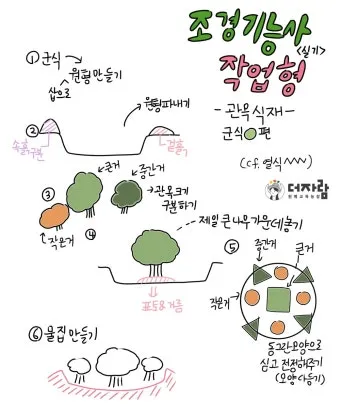 조경기능사
<실기>
작업형
- 관목식재 -
군식 편
(cf. 열식)
더자람
① 군식
삽으로 원형만들기
원형파내기
②
속흙구분
겉흙
③
큰거
중간거
관목크기
구분하기
작은거
④
제일 큰나무 가운데놓기
표토&거름
⑤
중간거
큰거
작은거
동그란모양으로
심고 전정해주기
(모양다듬기)
⑥ 물집만들기